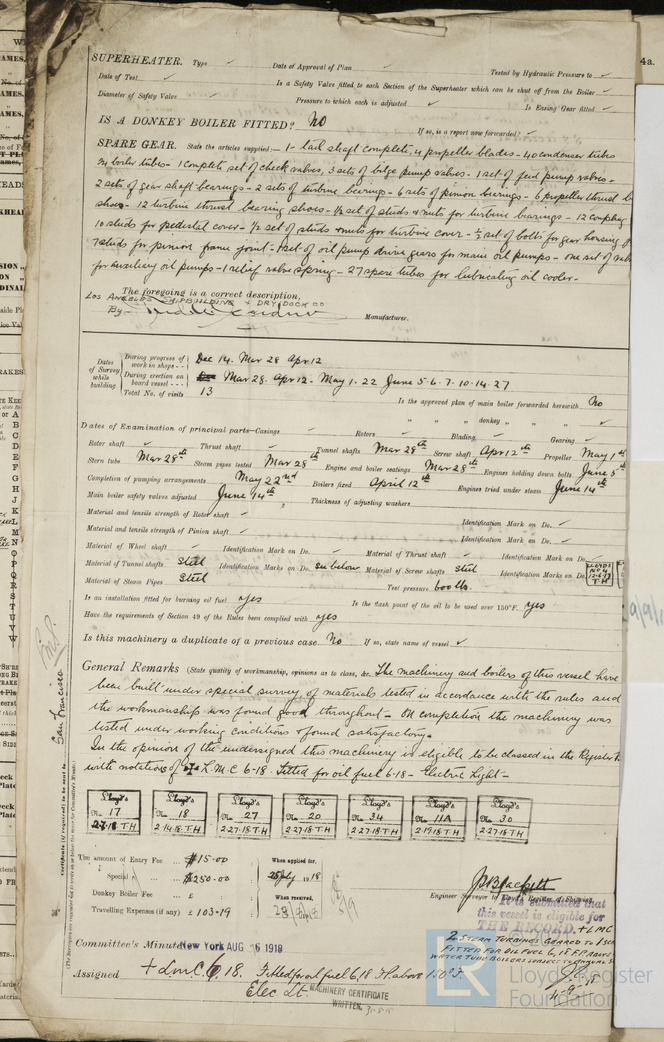 4a.
SUPERHEATER. Type ✓ Date of Approval of Plan ✓ Tested by Hydraulic Pressure to ✓
Date of Test ✓ Is a Safety Valve fitted to each Section of the Superheater which can be shut off from the Boiler ✓
Diameter of Safety Valve ✓ Pressure to which each is adjusted ✓ Is Easing Gear fitted ✓
IS A DONKEY BOILER FITTED? No If so, is a report now forwarded? ✓
SPARE GEAR. State the articles supplied:— 1- tail shaft complete, 4 propeller blades - 40 condenser tubes
24 boiler tubes - 1 complete set of check valves, 3 sets of bilge pump valves - 1 set of feed pump valves -
2 sets of gear shaft bearings - 2 sets of turbine bearings - 6 sets of pinion bearings - 6 propeller thrust b
shoes - 12 turbine thrust bearing shoes - ½ set of studs & nuts for turbine bearings - 12 coupling
10 studs for pedestal cover - ½ set of studs & nuts for turbine cover - ½ set of bolts for gear housing
7 studs for pinion frame joint - 1 set of oil pump drive gears for main oil pumps - one set of valv
for auxiliary oil pumps - 1 relief valve spring - 27 spare tubes for lubricating oil cooler -
The foregoing is a correct description,
LOS ANGELES SHIPBUILDING & DRYDOCK CO
By Manufacturer.
Dates of Survey while building
During progress of work in shops - - Dec 14. Mar 28 Apr 12
During erection on board vessel - - - Mar 28. Apr 12 - May 1. 22 June 5. 6. 7. 10. 14. 27
Total No. of visits 13 Is the approved plan of main boiler forwarded herewith No
" " " donkey " " ✓
Dates of Examination of principal parts—Casings ✓ Rotors ✓ Blading ✓ Gearing ✓
Rotor shaft ✓ Thrust shaft ✓ Tunnel shafts Mar 28th Screw shaft Apr 12th Propeller May 1st
Stern tube Mar 28th Steam pipes tested Mar 28th Engine and boiler seatings Mar 28th Engines holding down bolts June 5th
Completion of pumping arrangements May 22nd Boilers fixed April 12th Engines tried under steam June 14th
Main boiler safety valves adjusted June 14th Thickness of adjusting washers
Material and tensile strength of Rotor shaft ✓ Identification Mark on Do. ✓
Material and tensile strength of Pinion shaft ✓ Identification Mark on Do. ✓
Material of Wheel shaft ✓ Identification Mark on Do. ✓ Material of Thrust shaft ✓ Identification Mark on Do. ✓
Material of Tunnel shafts Steel Identification Marks on Do. see below Material of Screw shafts Steel Identification Marks on Do.
LLOYDS No 4 T.H
Material of Steam Pipes Steel Test pressure 600 lbs.
Is an installation fitted for burning oil fuel yes Is the flash point of the oil to be used over 150°F. yes
Have the requirements of Section 49 of the Rules been complied with yes
Is this machinery a duplicate of a previous case No If so, state name of vessel ✓
General Remarks (State quality of workmanship, opinions as to class, &c. The machinery and boilers of this vessel have
been built under special survey of materials tested in accordance with the rules and
the workmanship was found good throughout - On completion the machinery was
tested under working conditions & found satisfactory -
In the opinion of the undersigned this machinery is eligible to be classed in the Register
with notations of + L.M.C 6-18. Fitted for oil fuel 6-18 - Electric Light -
Lloyd's No 17 2-7-18 T.H
Lloyd's No 18 2-14-18 T.H
Lloyd's No 27 2-27-18 T.H
Lloyd's No 20 2-27-18 T.H
Lloyd's No 34 2-27-18 T.H
Lloyd's No 11A 2-19-18 T.H
Lloyd's No 30 2-27-18 T.H
San Francisco
Certificate (if required) to be sent to
The amount of Entry Fee ... $15.00 When applied for,
Special ... $250.00 1918
Donkey Boiler Fee ... £ When received,
Travelling Expenses (if any) £ 103.19
Engineer Surveyor to Lloyd's Register of Shipping.
It is submitted that
this vessel is eligible for
THE RECORD. + LMC
2 STEAM TURBINES GEARED TO 1 SCR
FITTED FOR OIL FUEL 6,18 F.P. ABOVE
Committee's Minute New York AUG 16 1918
Assigned + LMC 6.18. Fitted for oil fuel 6,18 F.P. above 150°F.
Elec Lt. MACHINERY CERTIFICATE
WRITTEN
LR
Lloyd's Register
Foundation